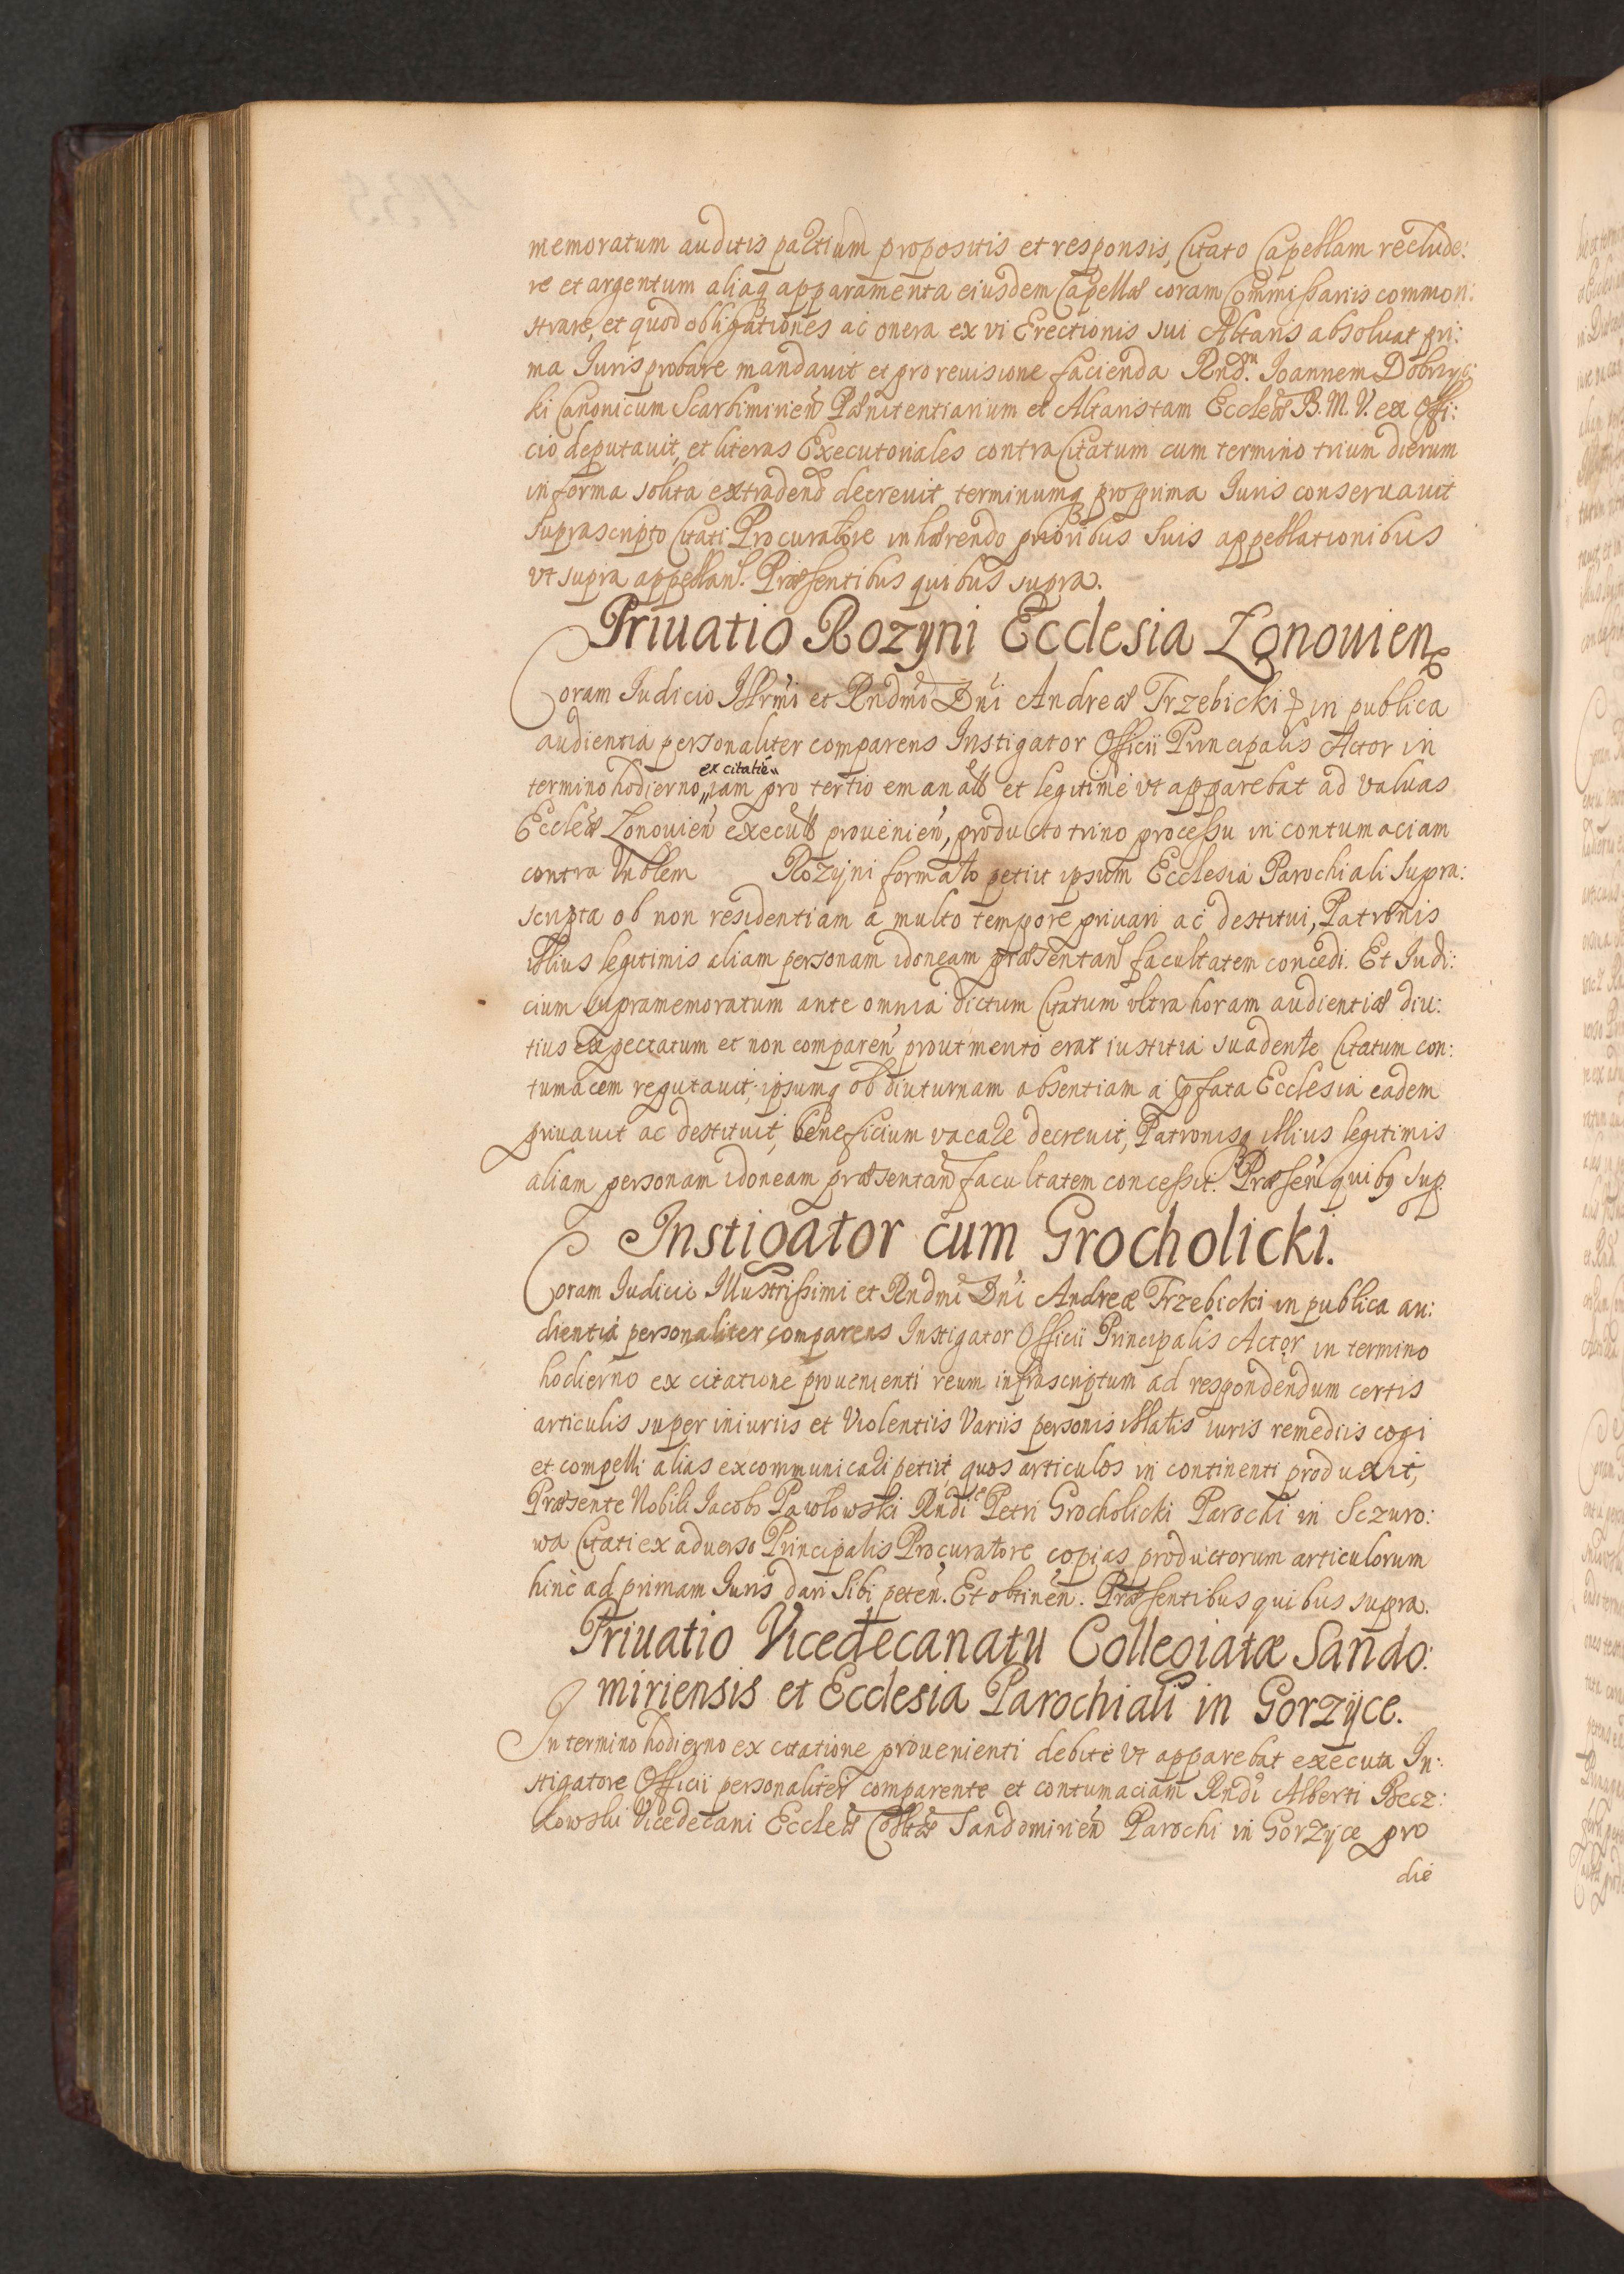 memoratum auditis partium propositis et responsis, Citato Capellam reclude:
re et argentum aliaq apparamenta eiusdem Capellæ coram Commissariis common:
strare, et quod obligationes ac onera ex vi Erectionis sui Altaris absoluat pri:
ma Juris probare mandauit et pro reuisione facienda Rnd.m Joannem Dobrzyc:
ki Canonicum Scarbimirien Pænitentiarium et Altaristam Eccleæ B. M. V. ex Offi:
cio deputauit, et literas Executoriales contra Citatum cum termino trium dierum
in forma solita extradend decreuit terminumq pro prima Juris conseruauit
suprascripto Citati Procuratore inhærendo prioribus suis appellationibus
vt supra appellan. Præsentibus quibus supra.
Priuatio Rozyni Ecclesia Zonouien
Coram Judicio Illrmi et Rndmi Dni Andreæ Trzebicki in publica
audientia personaliter comparens Instigator Officii Principalis Actor in
termino hodierno ex citatie iam pro tertio emanat et legitime vt apparebat ad valuas
Eccleæ Zonouien execut prouenien, producto trino processu in contumaciam
contra Vnblem Rozyni formato petiit ipsum Ecclesia Parochiali supra:
scripta ob non residentiam a multo tempore priuari ac destitui, Patronis
illius legitimis aliam personam idoneam præsentan facultatem concedi. Et Judi:
cium supramemoratum ante omnia dictum Citatum vltra horam audientiæ diu:
tius expectatum et non comparen prout merito erat iustitia suadente Citatum con:
tumacem reputauit, ipsumq ob diuturnam absentiam a pfata Ecclesia eadem
priuauit ac destituit, beneficium vacare decreuit, Patronisq illius legitimis
aliam personam idoneam præsentan facultatem concessit. Præsen quibq sup.
Instigator cum Grocholicki.
Coram Judicio Illustrissimi et Rndmi Dni Andreæ Trzebicki in publica au:
dientia personaliter comparens Instigator Officii Principalis Actor in termino
hodierno ex citatione prouenienti reum infrascriptum ad respondendum certis
articulis super iniuriis et Violentiis Variis personis illatis iuris remediis cogi
et compelli alias excommunicari petiit quos articulos in continenti produxit,
Præsente Nobili Jacobo Pawlowski Rndi Petri Grocholicki Parochi in Sczuro:
wa Citati ex aduerso Principalis Procuratore copias productorum articulorum
hinc ad primam Juris dari sibi peten. Et obtinen. Præsentibus quibus supra.
Priuatio Vicedecanatu Collegiatæ Sando:
miriensis et Ecclesia Parochiali in Gorzyce.
In termino hodierno ex citatione prouenienti debite vt apparebat executa In:
stigatore Officii personaliter comparente et contumaciam Rndi Alberti Becz:
kowski Vicedecani Eccleæ Colltæ Sandomirien Parochi in Gorzyce pro
die